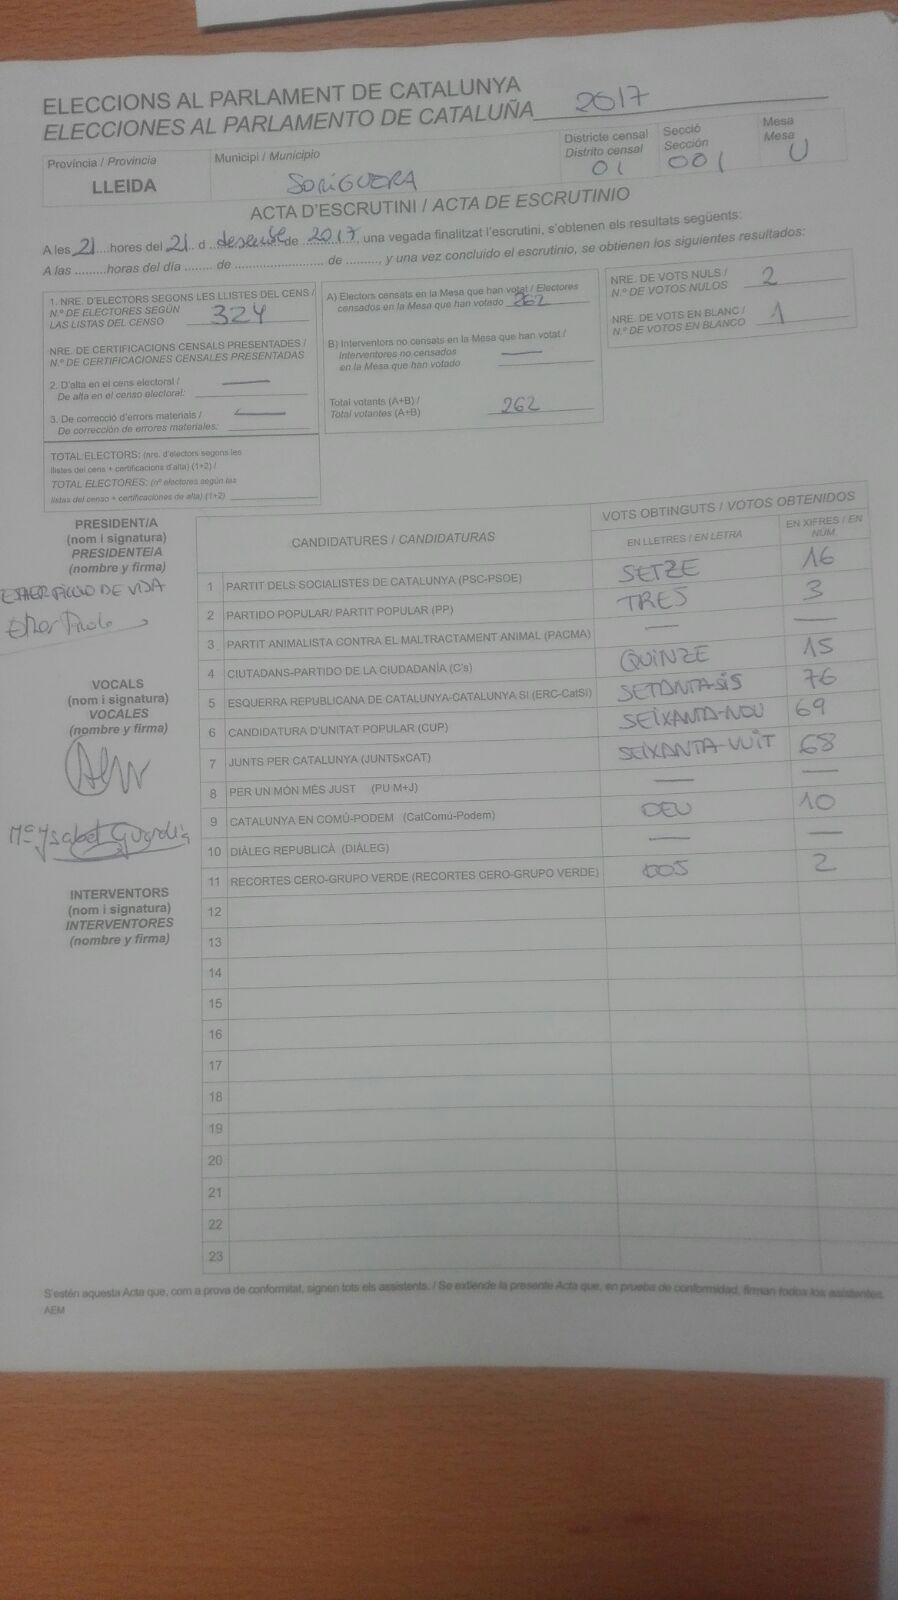 ELECCIONS AL PARLAMENT DE CATALUNYA
ELECCIONES AL PARLAMENTO DE CATALUÑA 2017
Província / Provincia
LLEIDA
Municipi / Municipio
SORIGUERA
Districte censal
Distrito censal
01
Secció
Sección
001
Mesa
Mesa
U
ACTA D'ESCRUTINI / ACTA DE ESCRUTINIO
A les 21 hores del 21 d desembre de 2017, una vegada finalitzat l'escrutini, s'obtenen els resultats següents:
A las .........horas del día ........ de ......................... de ........., y una vez concluido el escrutinio, se obtienen los siguientes resultados:
1. NRE. D'ELECTORS SEGONS LES LLISTES DEL CENS /
N.º DE ELECTORES SEGÚN
LAS LISTAS DEL CENSO 324
NRE. DE CERTIFICACIONS CENSALS PRESENTADES /
N.º DE CERTIFICACIONES CENSALES PRESENTADAS
2. D'alta en el cens electoral / —
De alta en el censo electoral:
3. De correcció d'errors materials / —
De corrección de errores materiales:
TOTAL ELECTORS: (nre. d'electors segons les
llistes del cens + certificacions d'alta) (1+2) /
TOTAL ELECTORES: (nº electores según las
listas del censo + certificaciones de alta) (1+2)
A) Electors censats en la Mesa que han votat / Electores
censados en la Mesa que han votado 262
B) Interventors no censats en la Mesa que han votat /
Interventores no censados —
en la Mesa que han votado
Total votants (A+B) /
Total votantes (A+B) 262
NRE. DE VOTS NULS /
N.º DE VOTOS NULOS 2
NRE. DE VOTS EN BLANC /
N.º DE VOTOS EN BLANCO 1
PRESIDENT/A
(nom i signatura)
PRESIDENTE/A
(nombre y firma)
VOCALS
(nom i signatura)
VOCALES
(nombre y firma)
Mª Ysabel Guardia
INTERVENTORS
(nom i signatura)
INTERVENTORES
(nombre y firma)
CANDIDATURES / CANDIDATURAS
VOTS OBTINGUTS / VOTOS OBTENIDOS
EN LLETRES / EN LETRA
EN XIFRES / EN NÚM.
1 PARTIT DELS SOCIALISTES DE CATALUNYA (PSC-PSOE) SETZE 16
2 PARTIDO POPULAR/ PARTIT POPULAR (PP) TRES 3
3 PARTIT ANIMALISTA CONTRA EL MALTRACTAMENT ANIMAL (PACMA) — —
4 CIUTADANS-PARTIDO DE LA CIUDADANÍA (C's) QUINZE 15
5 ESQUERRA REPUBLICANA DE CATALUNYA-CATALUNYA SI (ERC-CatSí) SETANTA-SIS 76
6 CANDIDATURA D'UNITAT POPULAR (CUP) SEIXANTA-NOU 69
7 JUNTS PER CATALUNYA (JUNTSxCAT) SEIXANTA-VUIT 68
8 PER UN MÓN MÉS JUST (PU M+J) — —
9 CATALUNYA EN COMÚ-PODEM (CatComú-Podem) DEU 10
10 DIÀLEG REPUBLICÀ (DIÀLEG) — —
11 RECORTES CERO-GRUPO VERDE (RECORTES CERO-GRUPO VERDE) DOS 2
12
13
14
15
16
17
18
19
20
21
22
23
S'estén aquesta Acta que, com a prova de conformitat, signen tots els assistents. / Se extiende la presente Acta que, en prueba de conformidad, firman todos los asistentes.
AEM